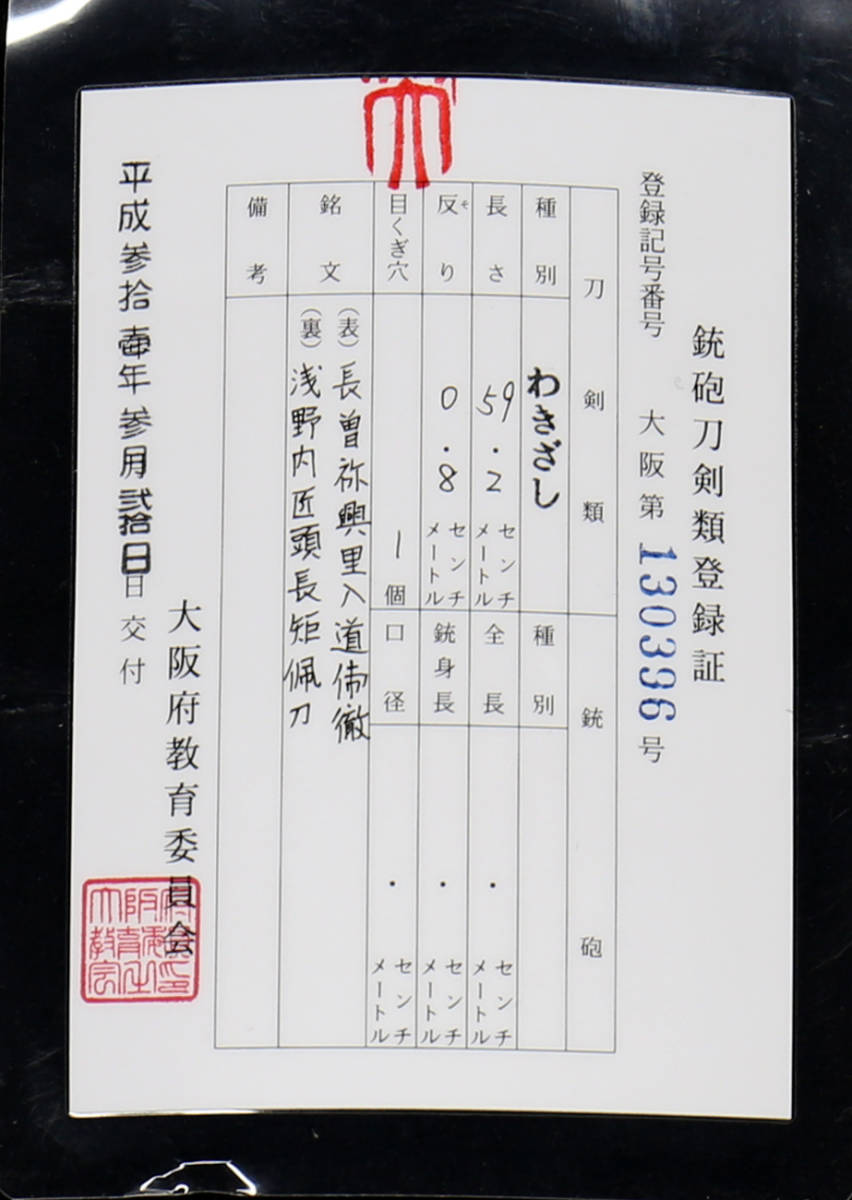 銃砲刀剣類登録証
登録記号番号 大阪第130396号
刀剣類
銃砲
種別 わきざし
種別
長さ 59.2センチメートル
全長 ・センチメートル
反り 0.8センチメートル
そ
銃身長 ・センチメートル
目くぎ穴 1個
口径 ・センチメートル
銘文
(表)長曽祢興里入道乕徹
(裏)浅野内匠頭長矩佩刀
備考
平成参拾壱年参月弐拾日日交付
大阪府教育委員会